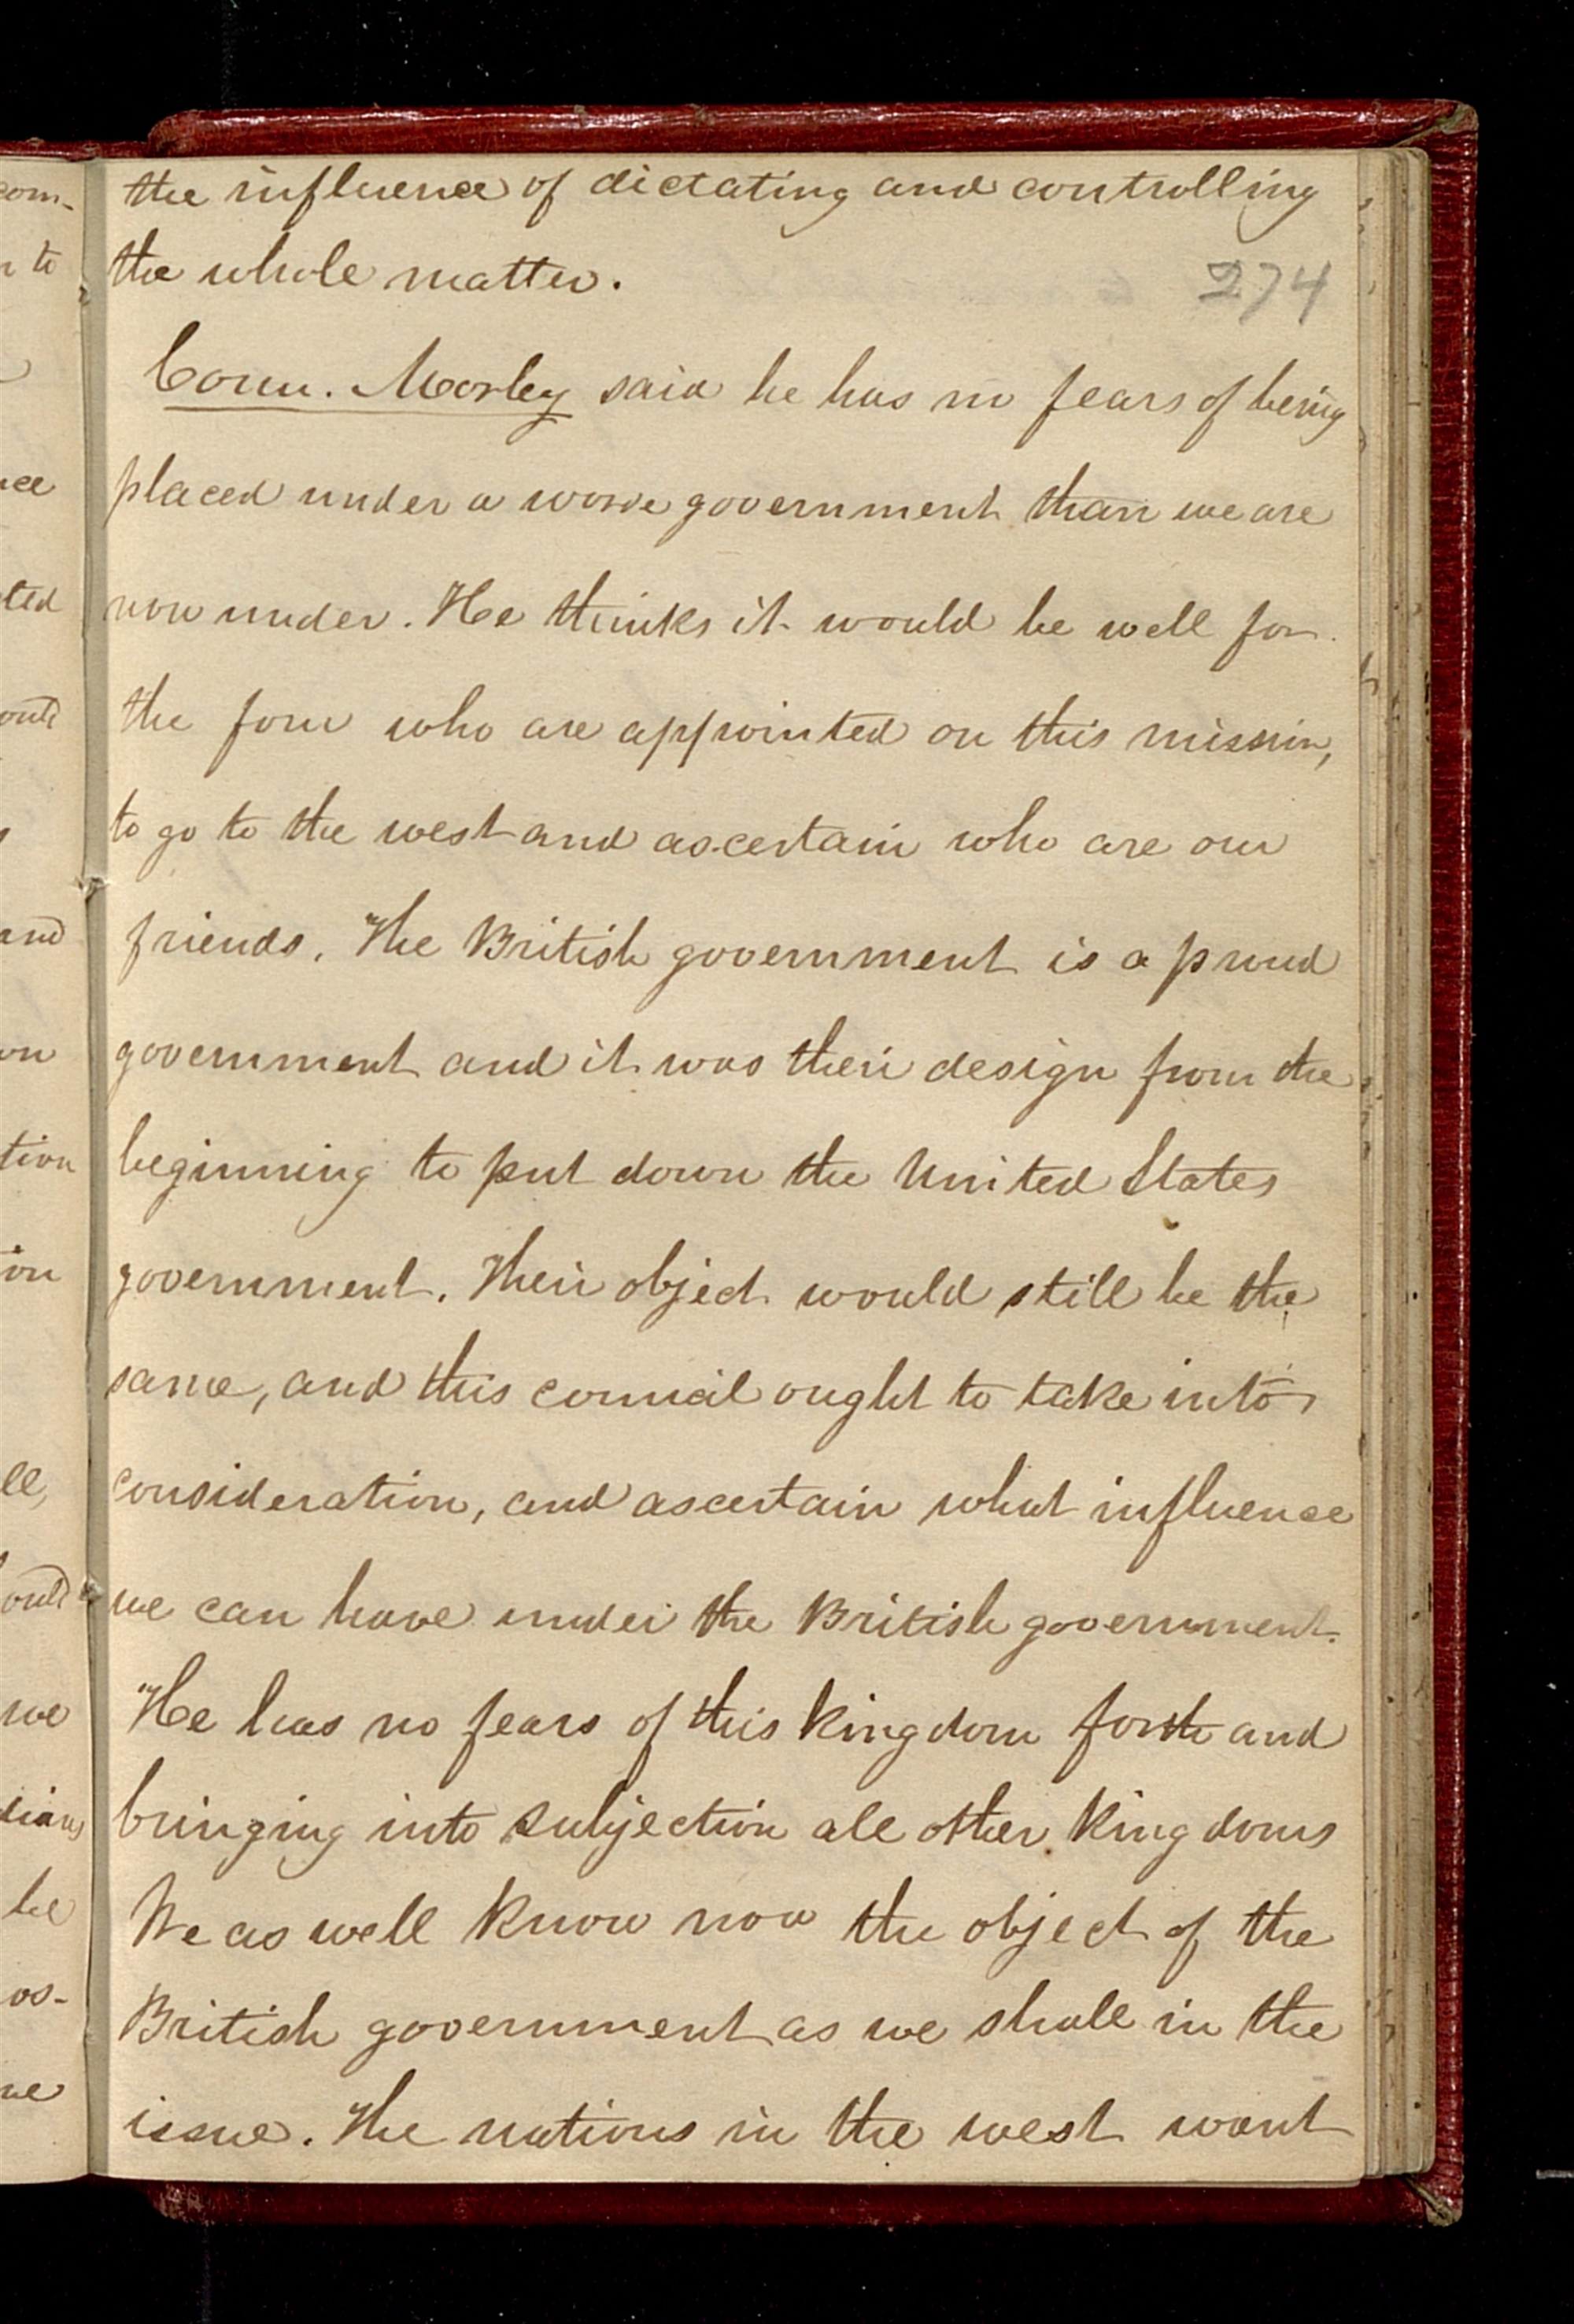 the influence of dictating and controlling
the whole matter.
274
Coun. Morley said he has no fears of being
placed under a worse government than we are
now under. He thinks it would be well for
the four who are appointed on this mission,
to go to the west and ascertain who are our
friends. The British government is a proud
government and it was their design from the
beginning to put down the United States
government. Their object would still be the
same, and this council ought to take into
consideration, and ascertain what influence
we can have under the British government.
He has no fears of this kingdom forth and
bringing into subjection all other kingdoms
We as well know now the object of the
British government as we shall in the
issue. The nations in the west want
com-
n to
nce
cted
ould
and
on
tion
ion
ll,
ould
we
dians
be
os-
ne